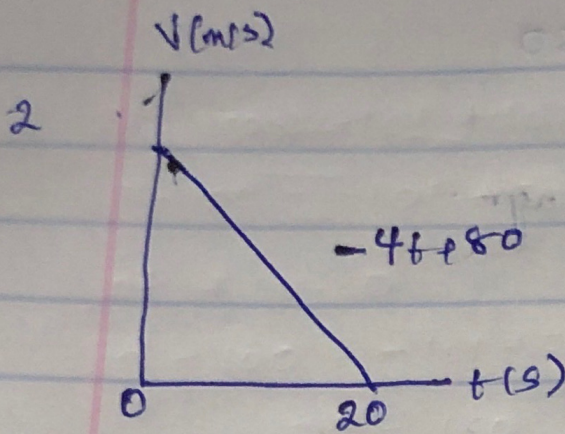 V(m/s)
2
-4t+80
0
20
t(s)